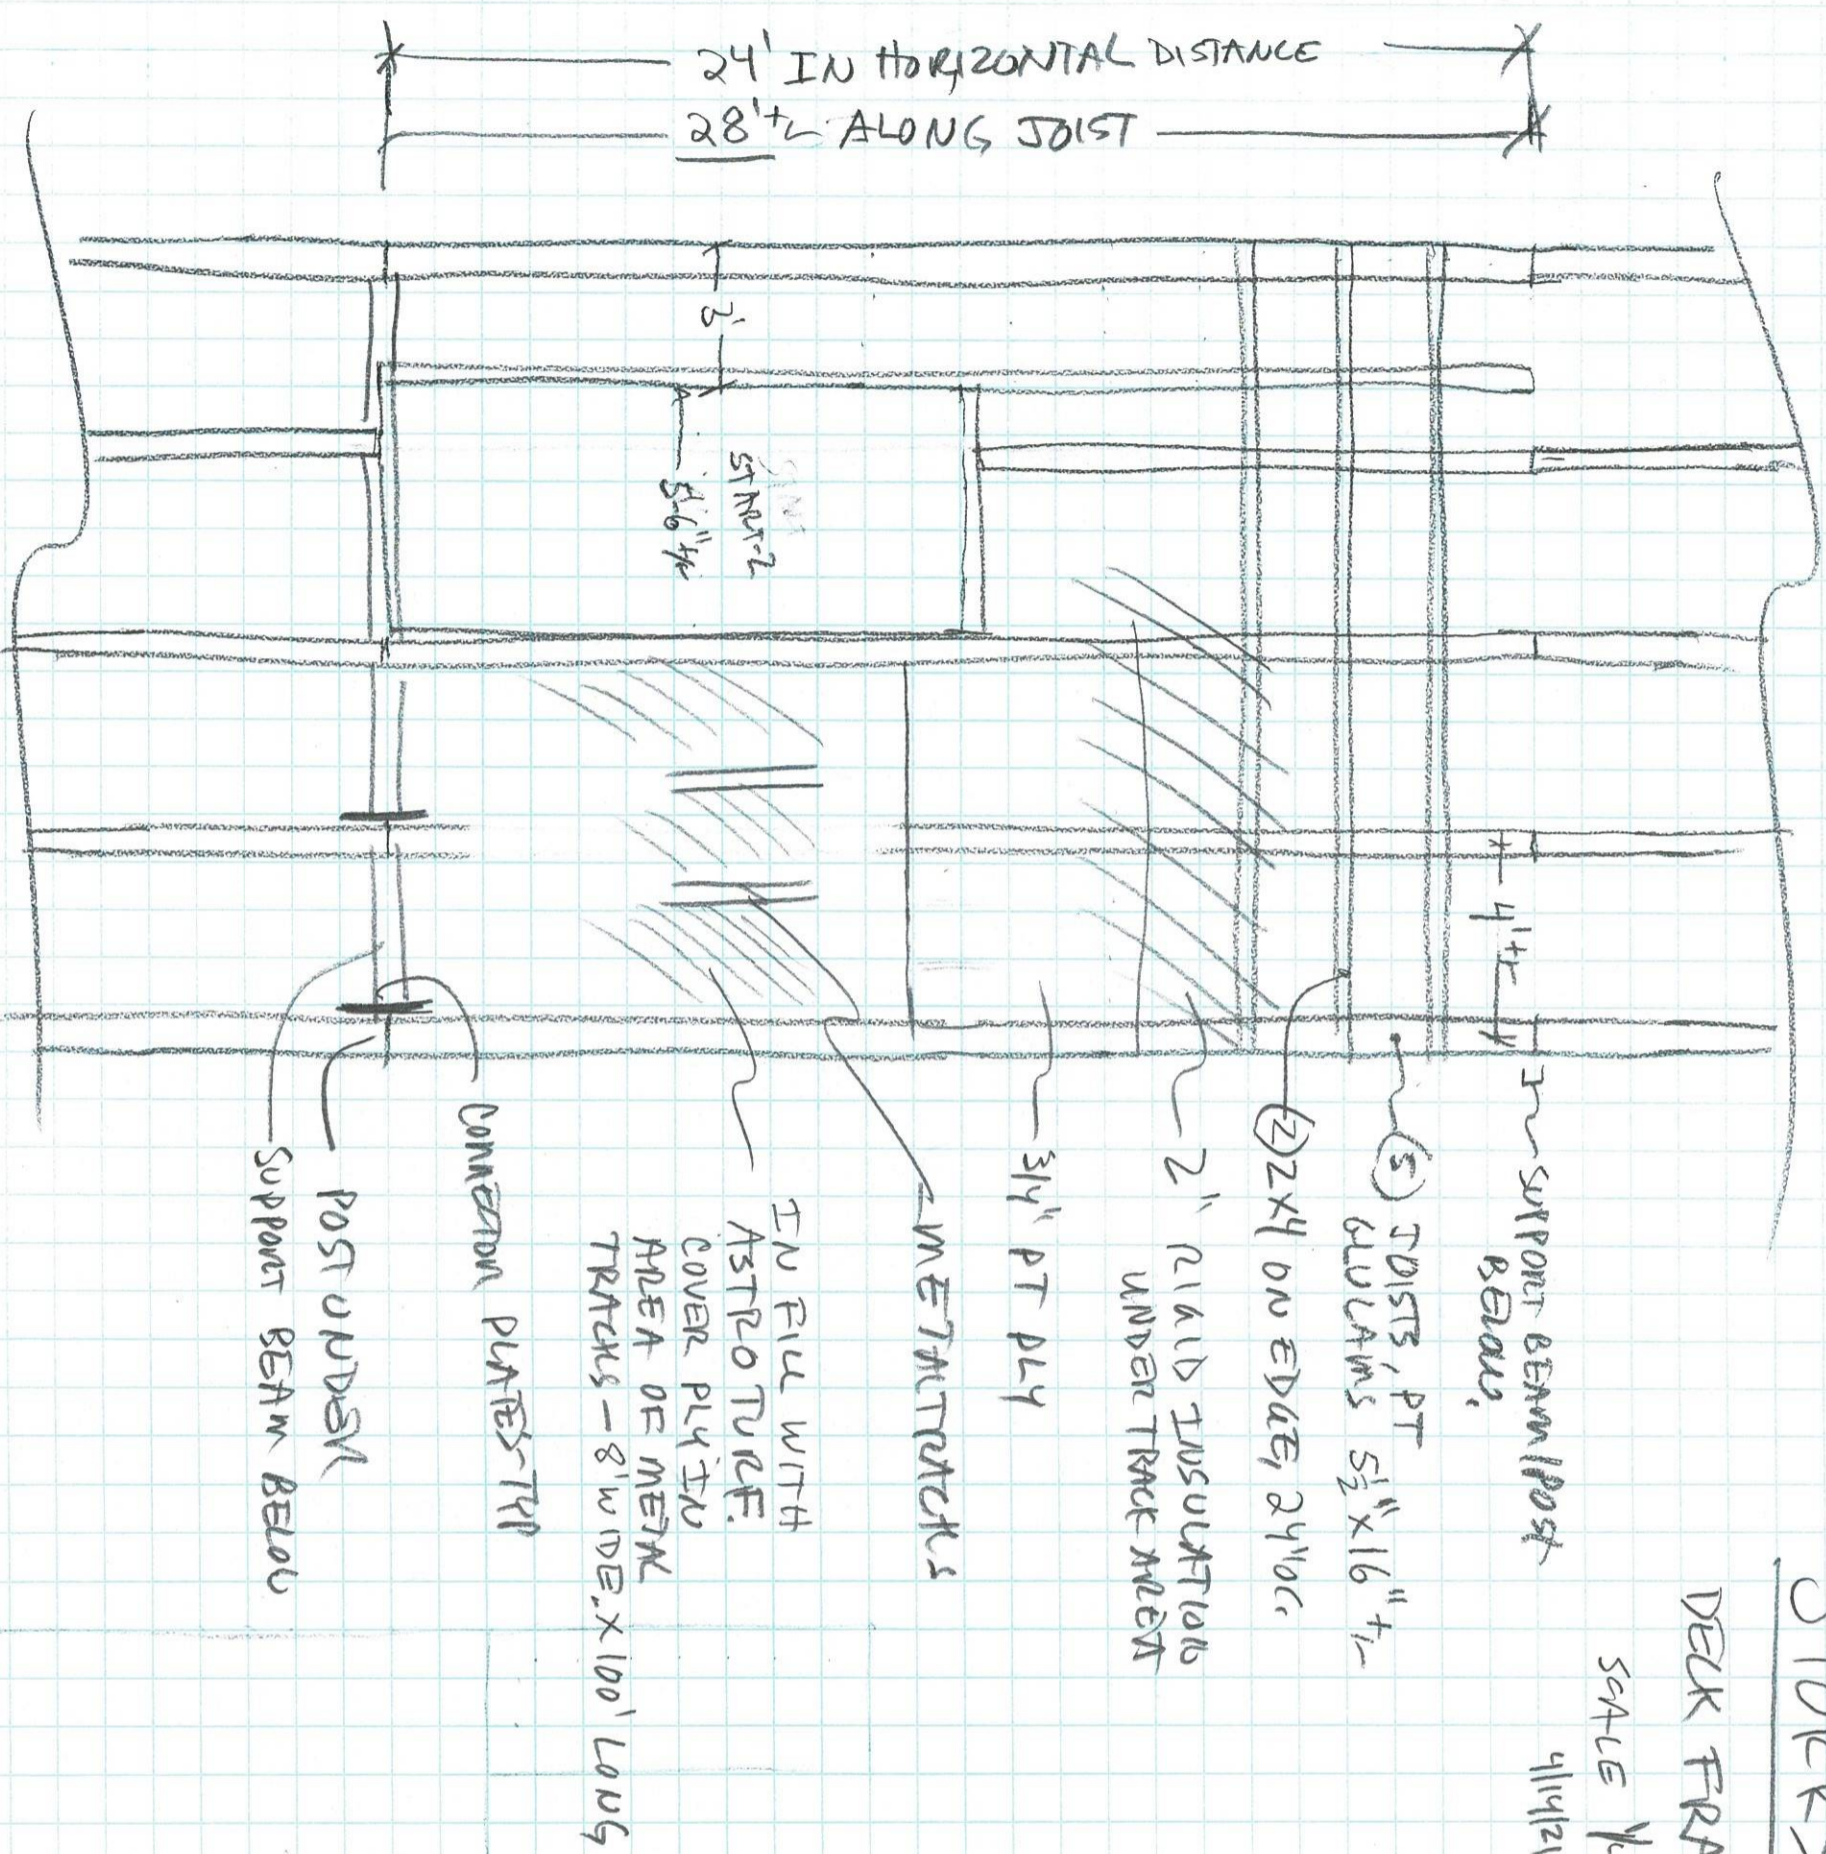 24' IN HORIZONTAL DISTANCE
28' +/- ALONG JOIST
3'
START-2
5'-6" +/-
4' +/-
SUPPORT BEAM/POST
BELOW.
5 JOISTS, PT
GLULAMS 5½" x 16" +/-
2 2x4 ON EDGE, 24" OC.
2" RIGID INSULATION
UNDER TRACK AREA
3/4" PT PLY
METAL TRACKS
IN FILL WITH
ASTRO TURF.
COVER PLY IN
AREA OF METAL
TRACKS - 8' WIDE. x 100' LONG
CONNECTOR PLATES-TYP
POST UNDER
SUPPORT BEAM BELOW
DECK FRA
SCALE
4/14/21